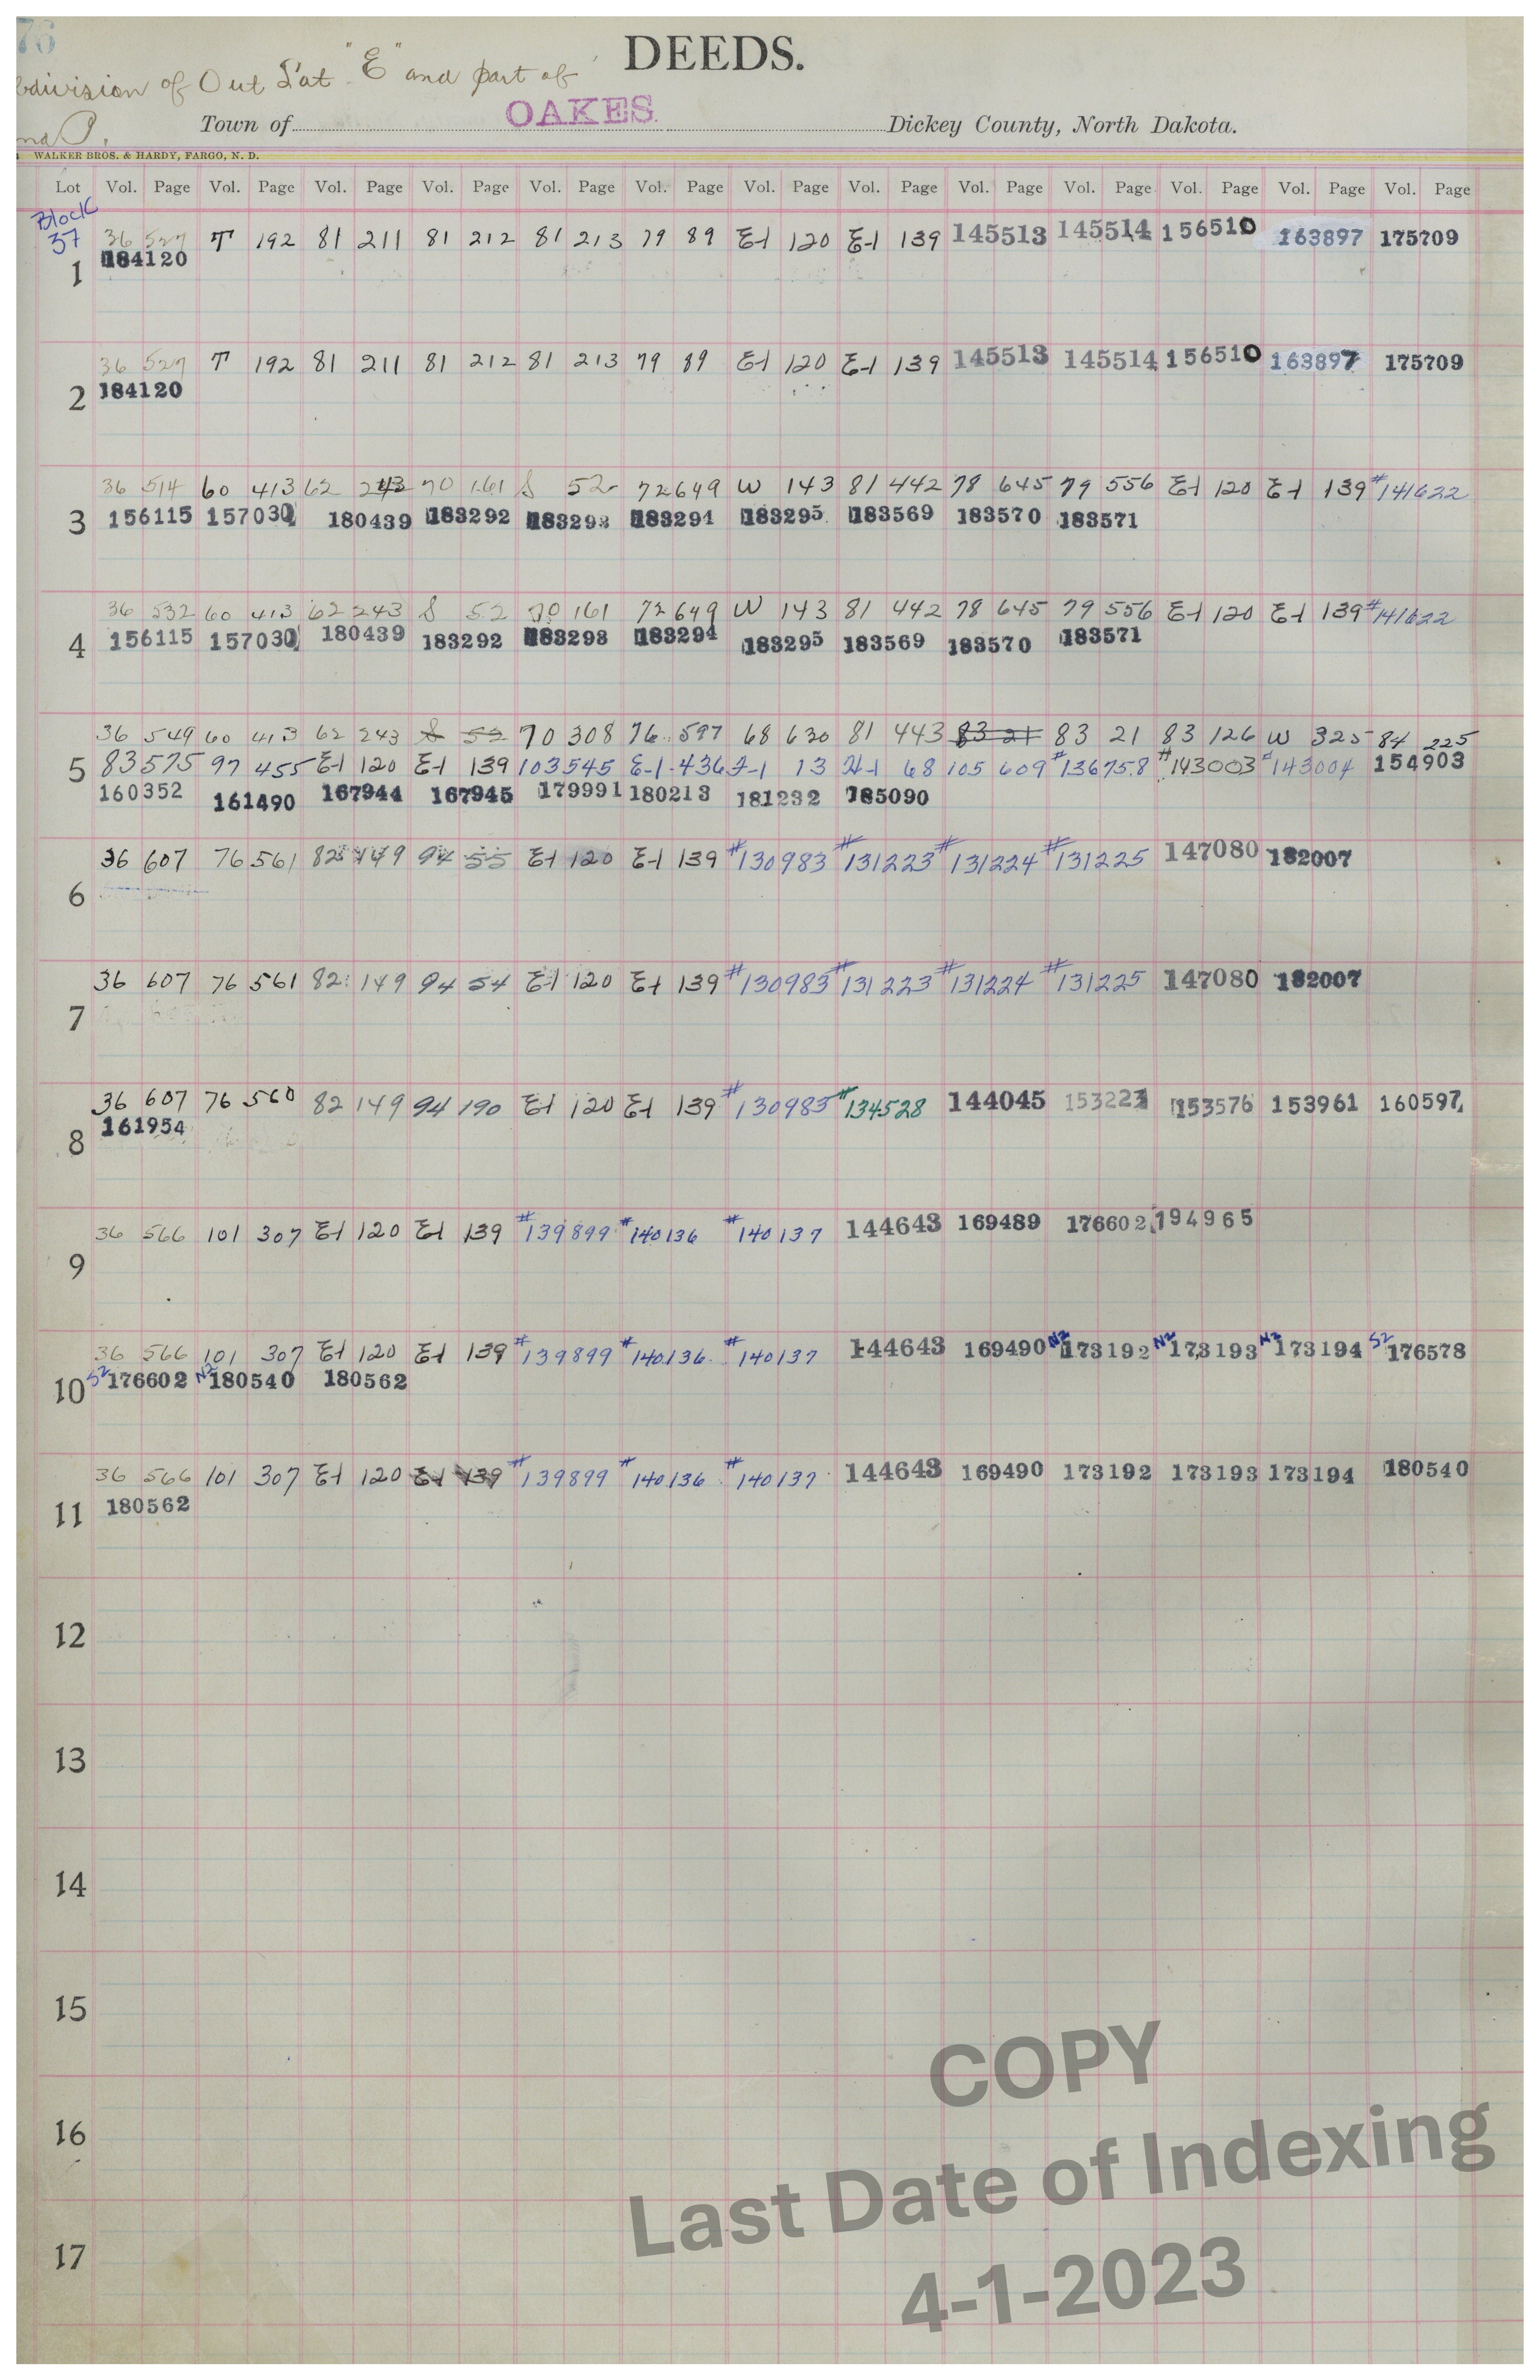 76
DEEDS.
bdivision of Out Lot "E" and part of
OAKES.
Town of Dickey County, North Dakota.
WALKER BROS. & HARDY, FARGO, N. D.
Lot Vol. Page Vol. Page Vol. Page Vol. Page Vol. Page Vol. Page Vol. Page Vol. Page Vol. Page Vol. Page Vol. Page Vol. Page Vol. Page
Block
37 36 527 T 192 81 211 81 212 81 213 79 89 E-1 120 E-1 139 145513 145514 156510 163897 175709
1 184120
36 527 T 192 81 211 81 212 81 213 79 89 E-1 120 E-1 139 145513 145514 156510 163897 175709
2 184120
36 514 60 413 62 243 70 161 S 52 72 649 W 143 81 442 78 645 79 556 E-1 120 E-1 139 #141622
3 156115 157030 180439 183292 183293 183294 183295 183569 183570 183571
36 532 60 413 62 243 S 52 70 161 72 649 W 143 81 442 78 645 79 556 E-1 120 E-1 139 #141622
4 156115 157030 180439 183292 183293 183294 183295 183569 183570 183571
36 549 60 413 62 243 S 52 70 308 76 597 68 630 81 443 83 21 83 21 83 126 W 325 84 225
5 83 575 97 455 E-1 120 E-1 139 103 545 E-1 436 F-1 13 H-1 68 105 609 #136758 #143003 #143004 154903
160352 161490 167944 167945 179991 180213 181232 185090
36 607 76 561 82 149 94 55 E-1 120 E-1 139 #130983 #131223 #131224 #131225 147080 182007
6
36 607 76 561 82 149 94 54 E-1 120 E-1 139 #130983 #131223 #131224 #131225 147080 182007
7
36 607 76 560 82 149 94 190 E-1 120 E-1 139 #130983 #134528 144045 153223 153576 153961 160597
8 161954
36 566 101 307 E-1 120 E-1 139 #139899 #140136 #140137 144643 169489 176602 194965
9
36 566 101 307 E-1 120 E-1 139 #139899 #140136 #140137 144643 169490 N2 173192 N2 173193 N2 173194 S2 176578
10 S2 176602 N2 180540 180562
36 566 101 307 E-1 120 E-1 139 #139899 #140136 #140137 144643 169490 173192 173193 173194 180540
11 180562
12
13
14
15
16
17
COPY
Last Date of Indexing
4-1-2023